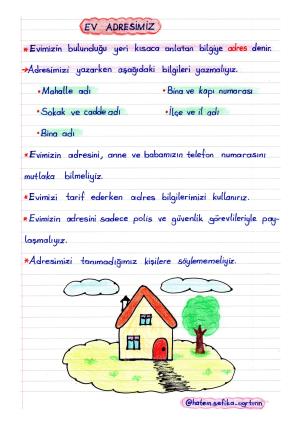 EV ADRESİMİZ
*Evimizin bulunduğu yeri kısaca anlatan bilgiye adres denir.
→Adresimizi yazarken aşağıdaki bilgileri yazmalıyız.
•Mahalle adı •Bina ve kapı numarası
•Sokak ve cadde adı •İlçe ve il adı
•Bina adı
*Evimizin adresini, anne ve babamızın telefon numarasını
mutlaka bilmeliyiz.
*Evimizi tarif ederken adres bilgilerimizi kullanırız.
*Evimizin adresini sadece polis ve güvenlik görevlileriyle pay-
laşmalıyız.
*Adresimizi tanımadığımız kişilere söylememeliyiz.